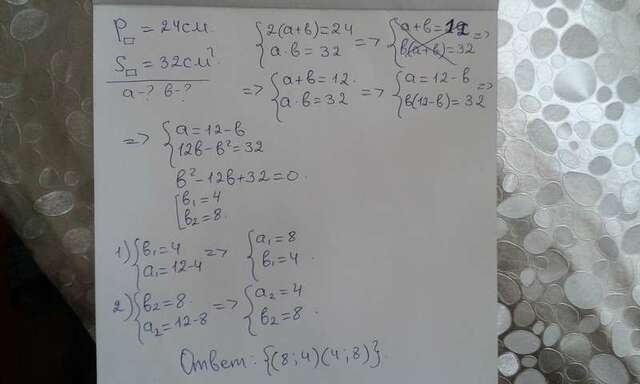 P□ = 24см. {2(a+в)=24 a·в=32 => {a+в=12 в(a+в)=32 =>
S□ = 32см²
a-? в-? => {a+в=12. a·в=32 => {a=12-в в(12-в)=32 =>
=> {a=12-в 12в-в²=32
в²-12в+32=0.
[в₁=4 в₂=8.
1) {в₁=4 a₁=12-4 => {a₁=8 в₁=4.
2) {в₂=8. a₂=12-8 => {a₂=4 в₂=8.
Ответ: {(8;4)(4;8)}.